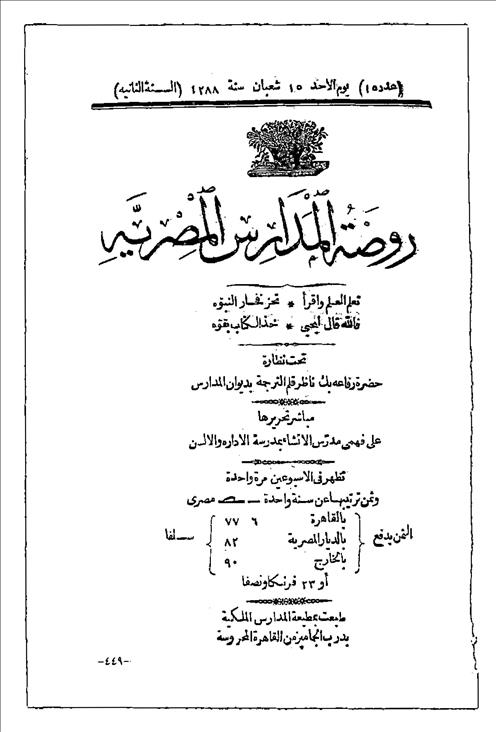 (عدد ١٥) يوم الاحد ١٥ شعبان سنة ١٢٨٨ (السنة الثانيه)
روضة المدارس المصريه
تعلم العلم واقرأ * تحز فخار النبوه
فالله قال ليحيى * خذ الكتاب بقوه
تحت نظارة
حضرة رفاعه بك ناظر قلم الترجمة بديوان المدارس
مباشر تحريرها
على فهمى مدرس الانشاء بمدرسة الاداره والالسن
تظهر فى الاسبوعين مرة واحدة
وثمن ترتيبها عن سنة واحدة مصرى
بالقاهرة ٦ ٧٧
الثمن يدفع بالديار المصرية ٨٢ سلفا
بالخارج ٩٠
أو ٢٣ فرنكا ونصفا
طبعت بمطبعة المدارس الملكية
بدرب الجماميز من القاهرة المحروسة
-٤٤٩-